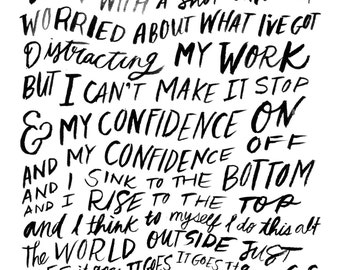 WITH A
WORRIED ABOUT WHAT I'VE GOT
Distracting MY WORK
BUT I CAN'T MAKE IT STOP
& MY CONFIDENCE ON
AND MY CONFIDENCE OFF
AND I SINK TO THE BOTTOM
AND I RISE TO THE TOP
and I think to myself I do this all
the WORLD OUTSIDE JUST
IT GOES IT GOES